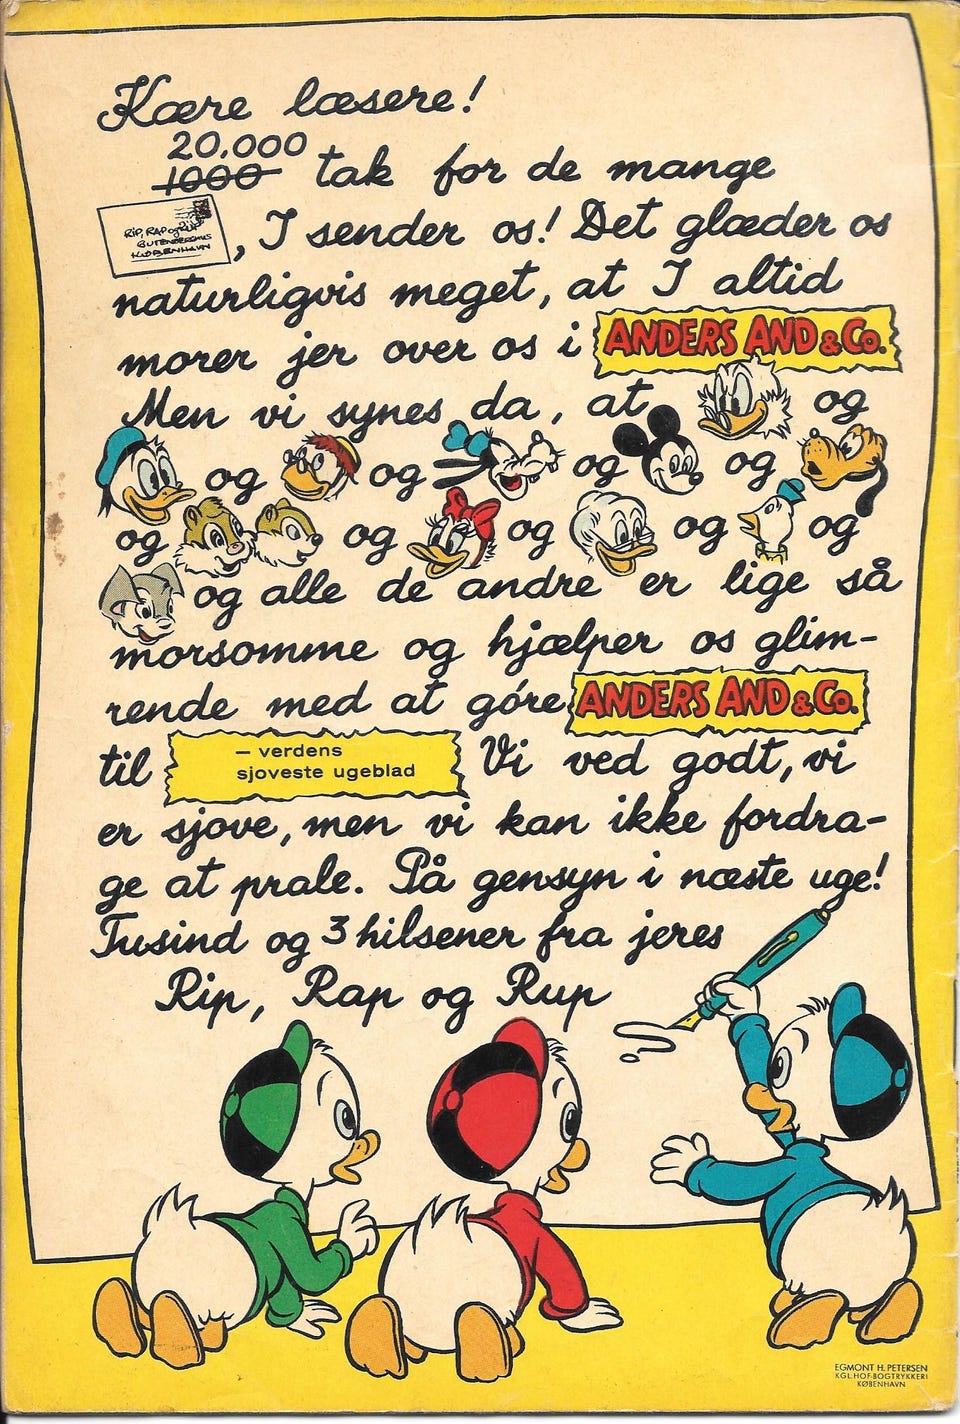 Kære læsere!
20.000
1000 tak for de mange
RIP, RAP og RUP
GUTENBERGHUS
KØBENHAVN
, I sender os! Det glæder os
naturligvis meget, at I altid
morer jer over os i ANDERS AND & Co.
Men vi synes da, at og
og og og og
og og og og og
og alle de andre er lige så
morsomme og hjælper os glim-
rende med at góre ANDERS AND & Co.
til – verdens
sjoveste ugeblad Vi ved godt, vi
er sjove, men vi kan ikke fordra-
ge at prale. På gensyn i næste uge!
Tusind og 3 hilsener fra jeres
Rip, Rap og Rup
EGMONT H. PETERSEN
KGL. HOF-BOGTRYKKERI
KØBENHAVN